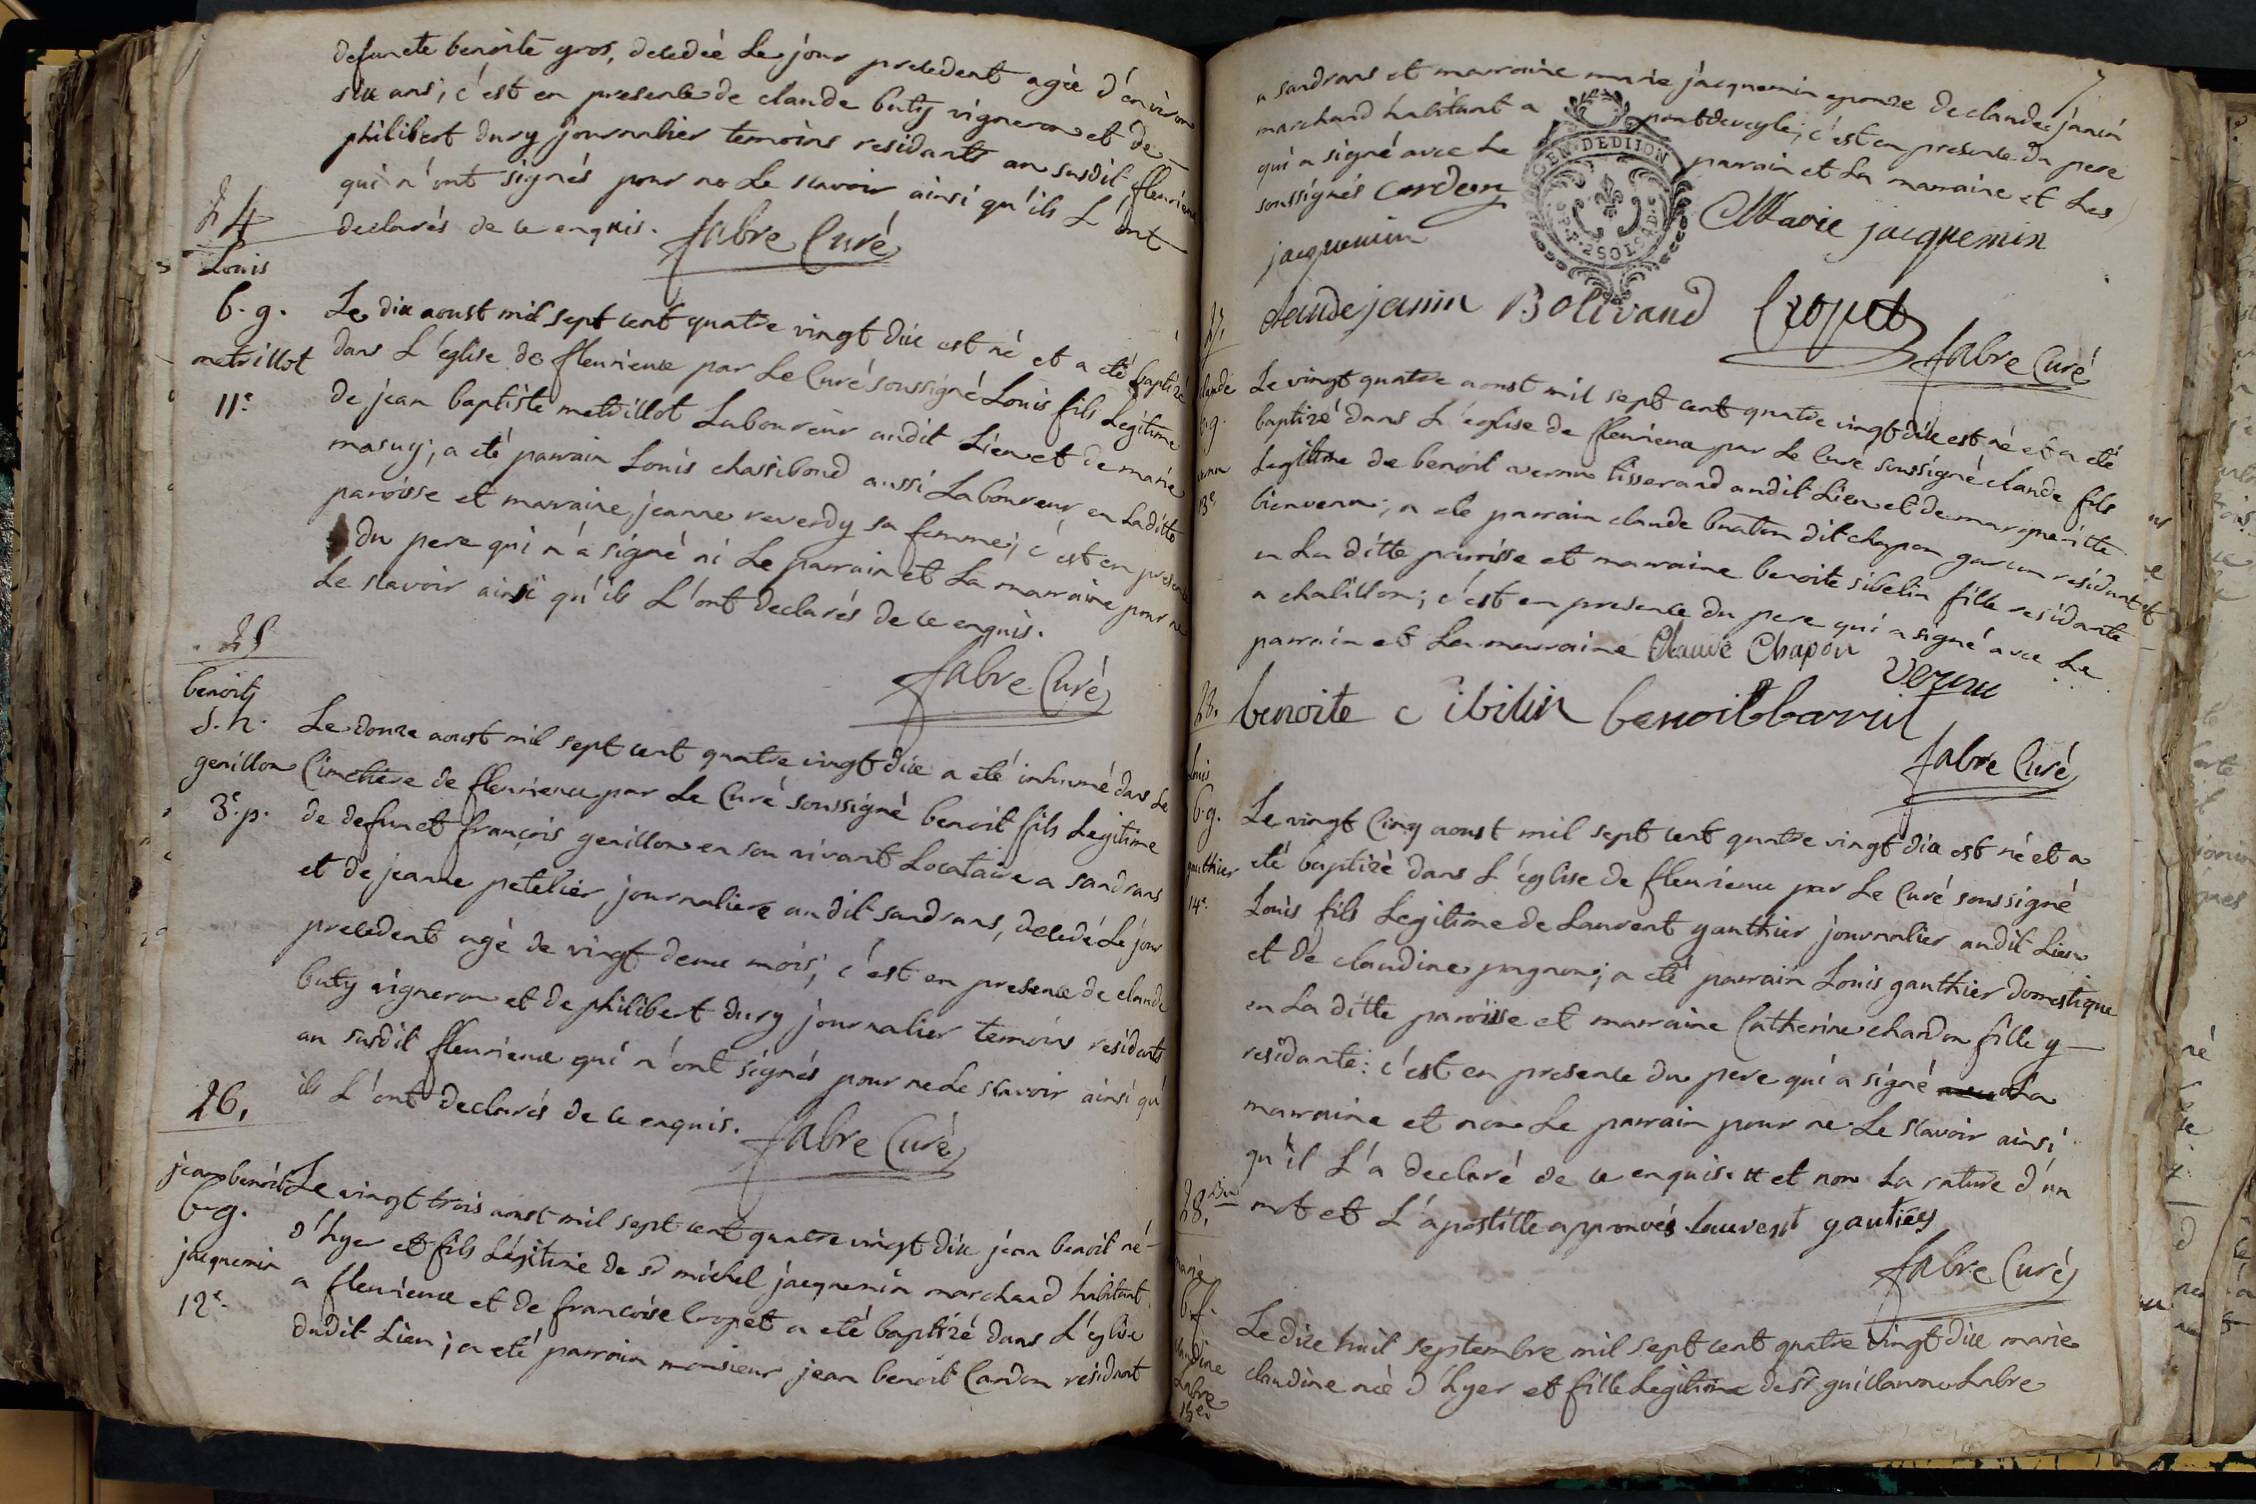 defuncte benoite gros, decedée Le jour precedent agée d'environ
six ans; c'est en presence de claude buty vigneron et de
philibert dury journalier temoins residants au susdit fleurieux
qui n'ont signés pour ne Le scavoir ainsi qu'ils L'ont
declarés de ce enquis. fabre Curé
24
Louis
b. g.
metrillot
11e
Le dix aoust mil sept cent quatre vingt dix est né et a eté baptizé
dans L'eglise de fleurieux par Le Curé soussigné Louis fils Legitime
de jean baptiste metrillot Laboureur audit Lieu et de marie
masuy; a eté parrain Louis chassibond aussi Laboureur en Laditte
paroisse et marraine jeanne reverdy sa femme; c'est en presence
du pere qui n'a signé ni Le parrain et La marraine pour ne
Le scavoir ainsi qu'ils L'ont declarés de ce enquis.
fabre Curé
25
benoit
s. h.
genillon
3e. p.
Le douze aoust mil sept cent quatre vingt dix a eté inhumé dans Le
Cimetiere de fleurieux par Le Curé soussigné benoit fils Legitime
de defunct françois genillon en son vivant Locataire a sandrans
et de jeanne petelier journaliere audit sandrans, decedé Le jour
precedent agé de vingt deux mois; c'est en presence de claude
buty vigneron et de philibert dury journalier temoins residants
au susdit fleurieux qui n'ont signés pour ne Le scavoir ainsi qu'
ils L'ont declarés de ce enquis. fabre Curé
26.
jean benoit
b. g.
jacquemin
12e.
Le vingt trois aoust mil sept cent quatre vingt dix jean benoit né
d'hyer et fils Légitime de sr michel jacquemin marchand habitant
a fleurieux et de francoise Cropet a eté baptizé dans L'eglise
dudit Lieu; a eté parrain monsieur jean benoit Cardon residant
7
a sandrans et marraine marie jacquemin epouze de claude janin
marchand habitant a pontdeveyle; c'est en presence du pere
qui a signé avec Le parrain et La marraine et Les
soussignés cardon Marie jacquemin
GEN. DE DIJON
jacquemin
claude janin Bolivand Cropet
fabre Curé
27.
claude
b. g.
vernu
13e
Le vingt quatre aoust mil sept cent quatre vingt dix est né et a eté
baptizé dans L'eglise de fleurieux par Le Curé soussigné claude fils
Legitime de benoit vernu tisserand audit Lieu et de marguéritte
bienvenu; a eté parrain claude buaton dit chapon garcon residant
en La ditte paroisse et marraine benoite sibelin fille residante
a chatillon; c'est en presence du pere qui a signé avec Le
parrain et La marraine Claude Chapon vernu
benoite cibilin benoit barril
fabre Curé
28.
Louis
b. g.
gauthier
14e.
Le vingt Cinq aoust mil sept cent quatre vingt dix est né et a
eté baptizé dans L'église de fleurieux par Le Curé soussigné
Louis fils Legitime de Laurent gauthier journalier audit Lieu
et de claudine pagnon; a eté parrain Louis gauthier domestique
en La ditte paroisse et marraine Catherine chardon fille y
residante: c'est en presence du pere qui a signé avec La
marraine et non Le parrain pour ne Le scavoir ainsi
qu'il L'a declaré de ce enquis. et non La rature d'un
mot et L'apostille approuvés Lauvent gautiey
fabre Curé
28. bis
marie
b. f.
claudine
Labre
15e.
Le dix huit septembre mil sept cent quatre vingt dix marie
claudine née d'hyer et fille Legitime de sr guillaume Labre